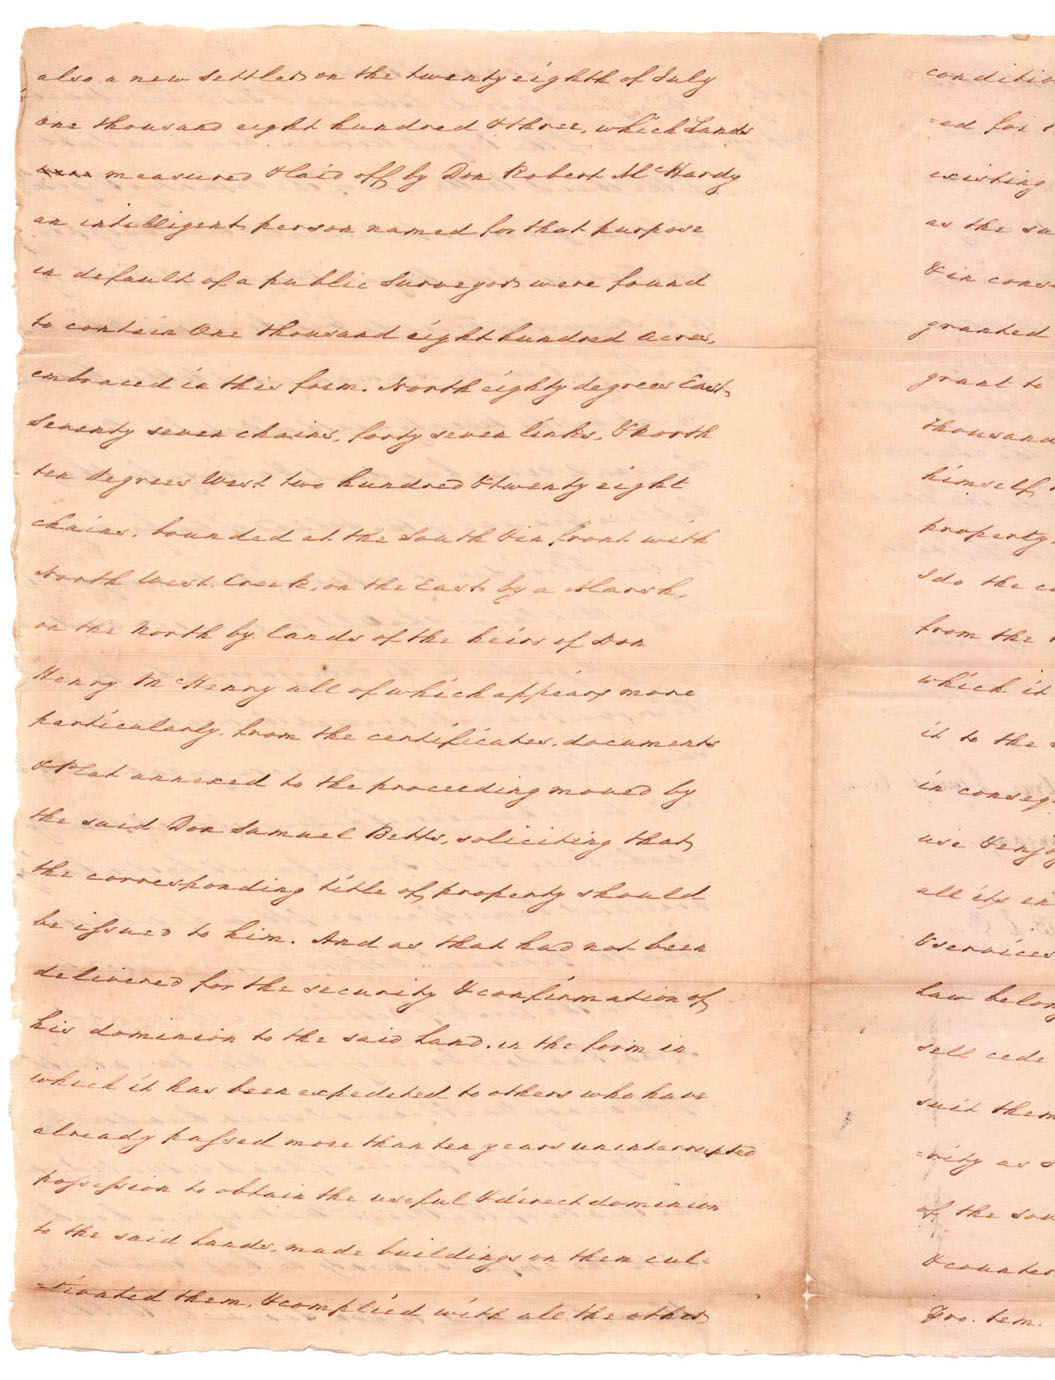 also a new settler, on the twenty eighth of July
One thousand eight hundred & three, which Lands
were measured & laid off by Don Robert McHardy
an intelligent person named for that purpose
in default of a public Surveyor were found
to contain One thousand eight hundred acres,
embraced in this form. North eighty degrees East,
Seventy seven chains, forty seven links, & North
ten degrees West two hundred & twenty eight
chains, bounded at the South & in front with
North West Creek, on the East by a Marsh,
on the North by lands of the heirs of Don
Henry McHenry all of which appears more
particularly from the certificates, documents
& Plat annexed to the proceeding moved by
the said Don Samuel Betts, soliciting that
the corresponding title of property should
be issued to him. And as that had not been
delivered for the security & confirmation of
his dominion to the said Land, in the form in
which it has been expedited to others who have
already passed more than ten years uninterrupted
possession to obtain the useful & direct dominion
to the said Lands, made buildings on them cul-
=tivated them, & complied with all the other
conditio
=ed for
existing
as the su
& in cons
granted
grant to
thousand
himself,
property
I do the c
from the
which it
it to the
in conseq
use & enjoy
all its en
& services
Law belong
sell cede
suit them
=rity as s
of the sou
& counter
Pro. tem.